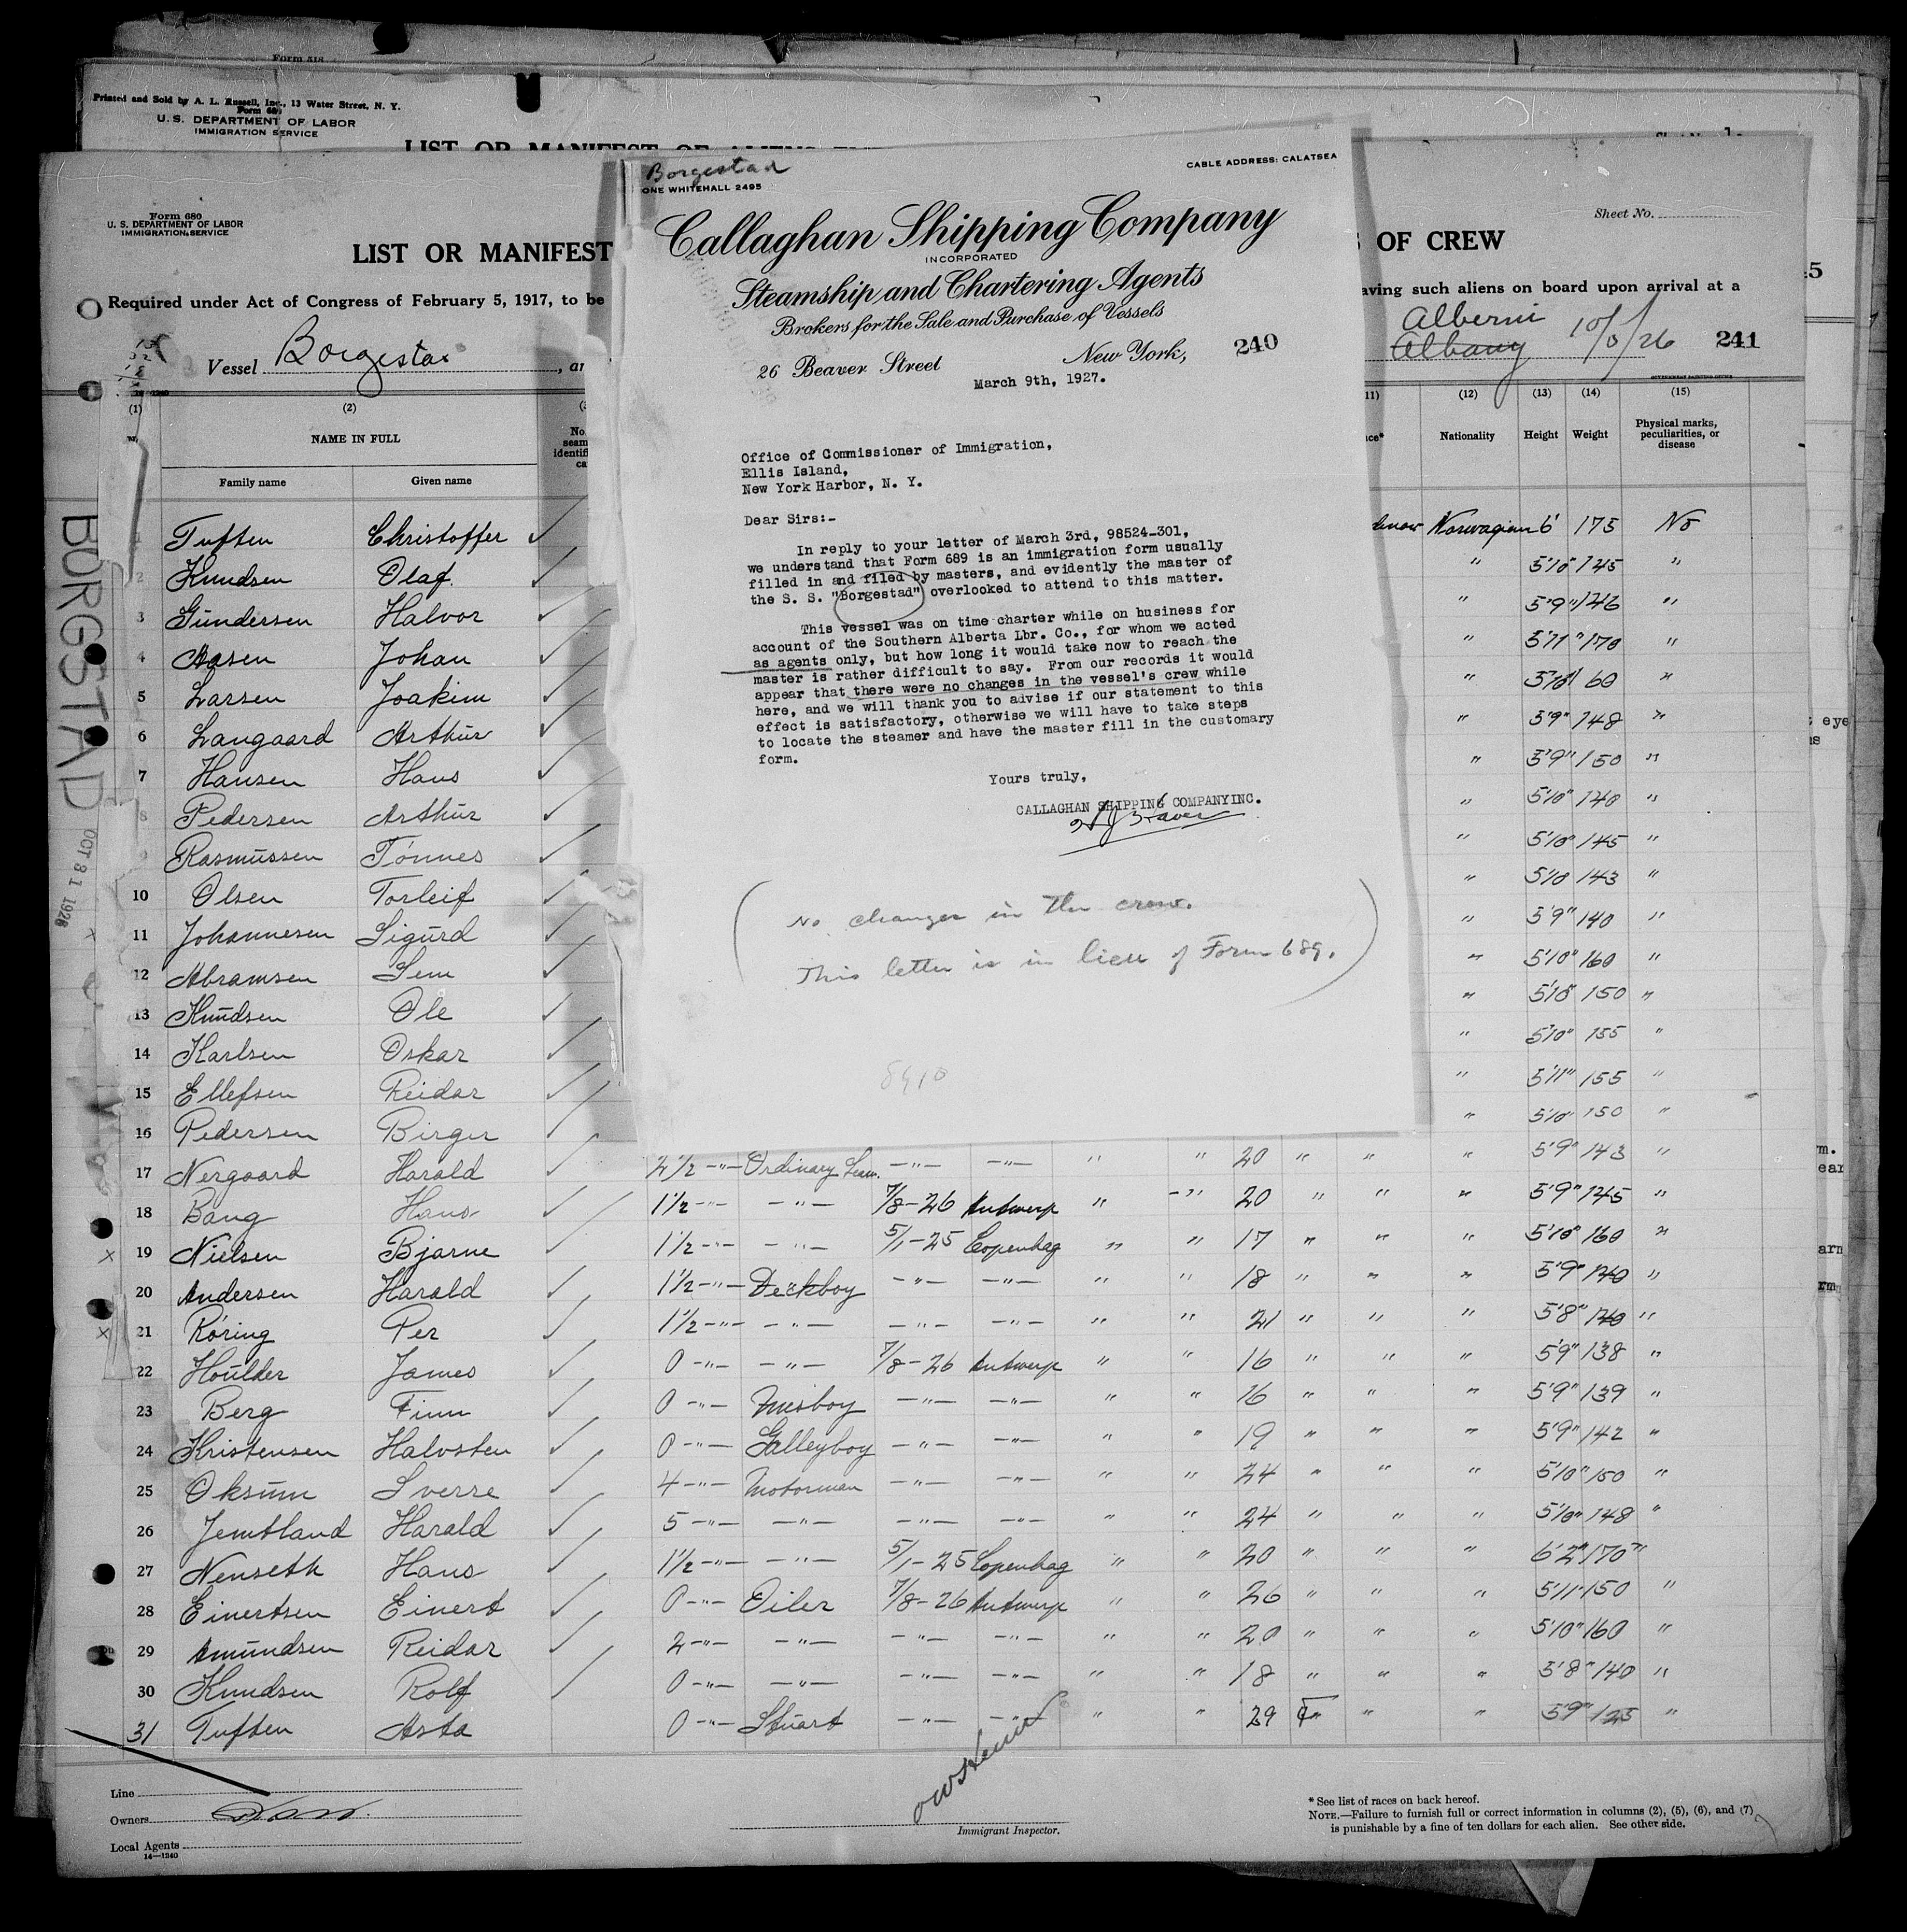 Form 518
Printed and Sold by A. L. Russell, Inc., 13 Water Street, N. Y.
Form 689
U. S. DEPARTMENT OF LABOR
IMMIGRATION SERVICE
LIST OR MANIFEST OF ALIENS
Form 680
U. S. DEPARTMENT OF LABOR
IMMIGRATION SERVICE
Sheet No.
LIST OR MANIFEST
OF CREW
Required under Act of Congress of February 5, 1917, to be
aving such aliens on board upon arrival at a
Vessel Borgestad, ar
Alberni
Albany 10/3/26 241
GOVERNMENT PRINTING OFFICE
Borgestad
ONE WHITEHALL 2495
CABLE ADDRESS: CALATSEA
Callaghan Shipping Company
INCORPORATED
Steamship and Chartering Agents
Brokers for the Sale and Purchase of Vessels
26 Beaver Street New York, 240
March 9th, 1927.
Office of Commissioner of Immigration,
Ellis Island,
New York Harbor, N. Y.
Dear Sirs:-
In reply to your letter of March 3rd, 98524-301,
we understand that Form 689 is an immigration form usually
filled in and filed by masters, and evidently the master of
the S. S. "Borgestad" overlooked to attend to this matter.
This vessel was on time charter while on business for
account of the Southern Alberta Lbr. Co., for whom we acted
as agents only, but how long it would take now to reach the
master is rather difficult to say. From our records it would
appear that there were no changes in the vessel's crew while
here, and we will thank you to advise if our statement to this
effect is satisfactory, otherwise we will have to take steps
to locate the steamer and have the master fill in the customary
form.
Yours truly,
CALLAGHAN SHIPPING COMPANYINC.
(No changes in the crew.
This letter is in lieu of Form 689.)
8910
BORGSTAD
OCT 31 1926
(1) (2) (11) (12) (13) (14) (15)
NAME IN FULL
Family name Given name
Nationality Height Weight Physical marks, peculiarities, or disease
Tuften Christoffer Norwegian 6' 175 No
2 Knudsen Olaf 5'10" 145 "
3 Gundersen Halvor " 5'9" 146 "
4 Aasen Johan " 5'11" 170 "
5 Larsen Joakim " 5'10" 160 "
6 Langaard Arthur " 5'9" 148 "
7 Hansen Hans " 5'9" 150 "
8 Pedersen Arthur " 5'10" 140 "
9 Rasmussen Tønnes " 5'10" 145 "
10 Olsen Torleif " 5'10 143 "
11 Johannesen Sigurd " 5'9" 140 "
12 Abramsen Sem " 5'10" 160 "
13 Knudsen Ole " 5'10" 150 "
14 Karlsen Oskar " 5'10" 155 "
15 Ellefsen Reidar " 5'11" 155 "
16 Pedersen Birger " 5'10" 150 "
17 Nergaard Harald 2 1/2 -"- Ordinary Seam. -"- -"- " " 20 " " " 5'9" 143 "
18 Bang Hans 1 1/2 -"- -"- 7/8-26 Antwerp " -"- 20 " " " 5'9" 145 "
19 Nielsen Bjarne 1 1/2 -"- -"- 5/1-25 Copenhag " " 17 " " " 5'10" 160 "
20 Andersen Harald 1 1/2 -"- Deckboy -"- -"- " " 18 " " " 5'9" 140 "
21 Røring Per 1 1/2 -"- -"- -"- -"- " " 21 " " " 5'8" 140 "
22 Houlder James 0 -"- -"- 7/8-26 Antwerp " " 16 " " " 5'9" 138 "
23 Berg Finn 0 -"- Messboy -"- -"- " 16 " " " 5'9" 139 "
24 Kristensen Halvsten 0 -"- Galleyboy -"- -"- " " 19 " " " 5'9" 142 "
25 Oksum Sverre 4 -"- Motorman -"- -"- " " 24 " " " 5'10" 150 "
26 Jemtland Harald 5 -"- -"- -"- -"- " " 24 " " " 5'10" 148 "
27 Nenseth Hans 1 1/2 -"- -"- 5/1-25 Copenhag " " 20 " " " 6'2" 170 "
28 Einertsen Einert 0 -"- Oiler 7/8-26 Antwerp " 26 " " " 5'11 150 "
29 Amundsen Reidar 2 -"- -"- -"- -"- " " 20 " " " 5'10" 160 "
30 Knudsen Rolf 0 -"- -"- -"- -"- " " 18 " " " 5'8" 140 "
31 Tuften Asta 0 -"- Stuart -"- -"- " " 29 F " " 5'9" 125 "
Line
Owners
Local Agents
14-1240
Immigrant Inspector.
* See list of races on back hereof.
NOTE.—Failure to furnish full or correct information in columns (2), (5), (6), and (7)
is punishable by a fine of ten dollars for each alien. See other side.